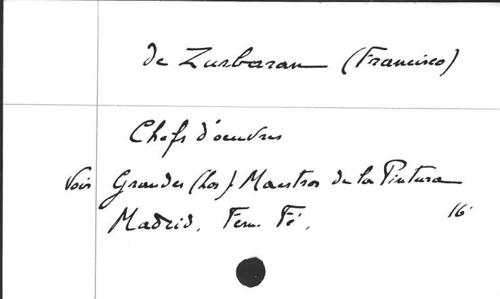 de Zurbaran (Francisco)
Chefs d'oeuvres
Voir Grandes (Los) Maestros de la Pintura
Madrid. Fern. Fé. 16